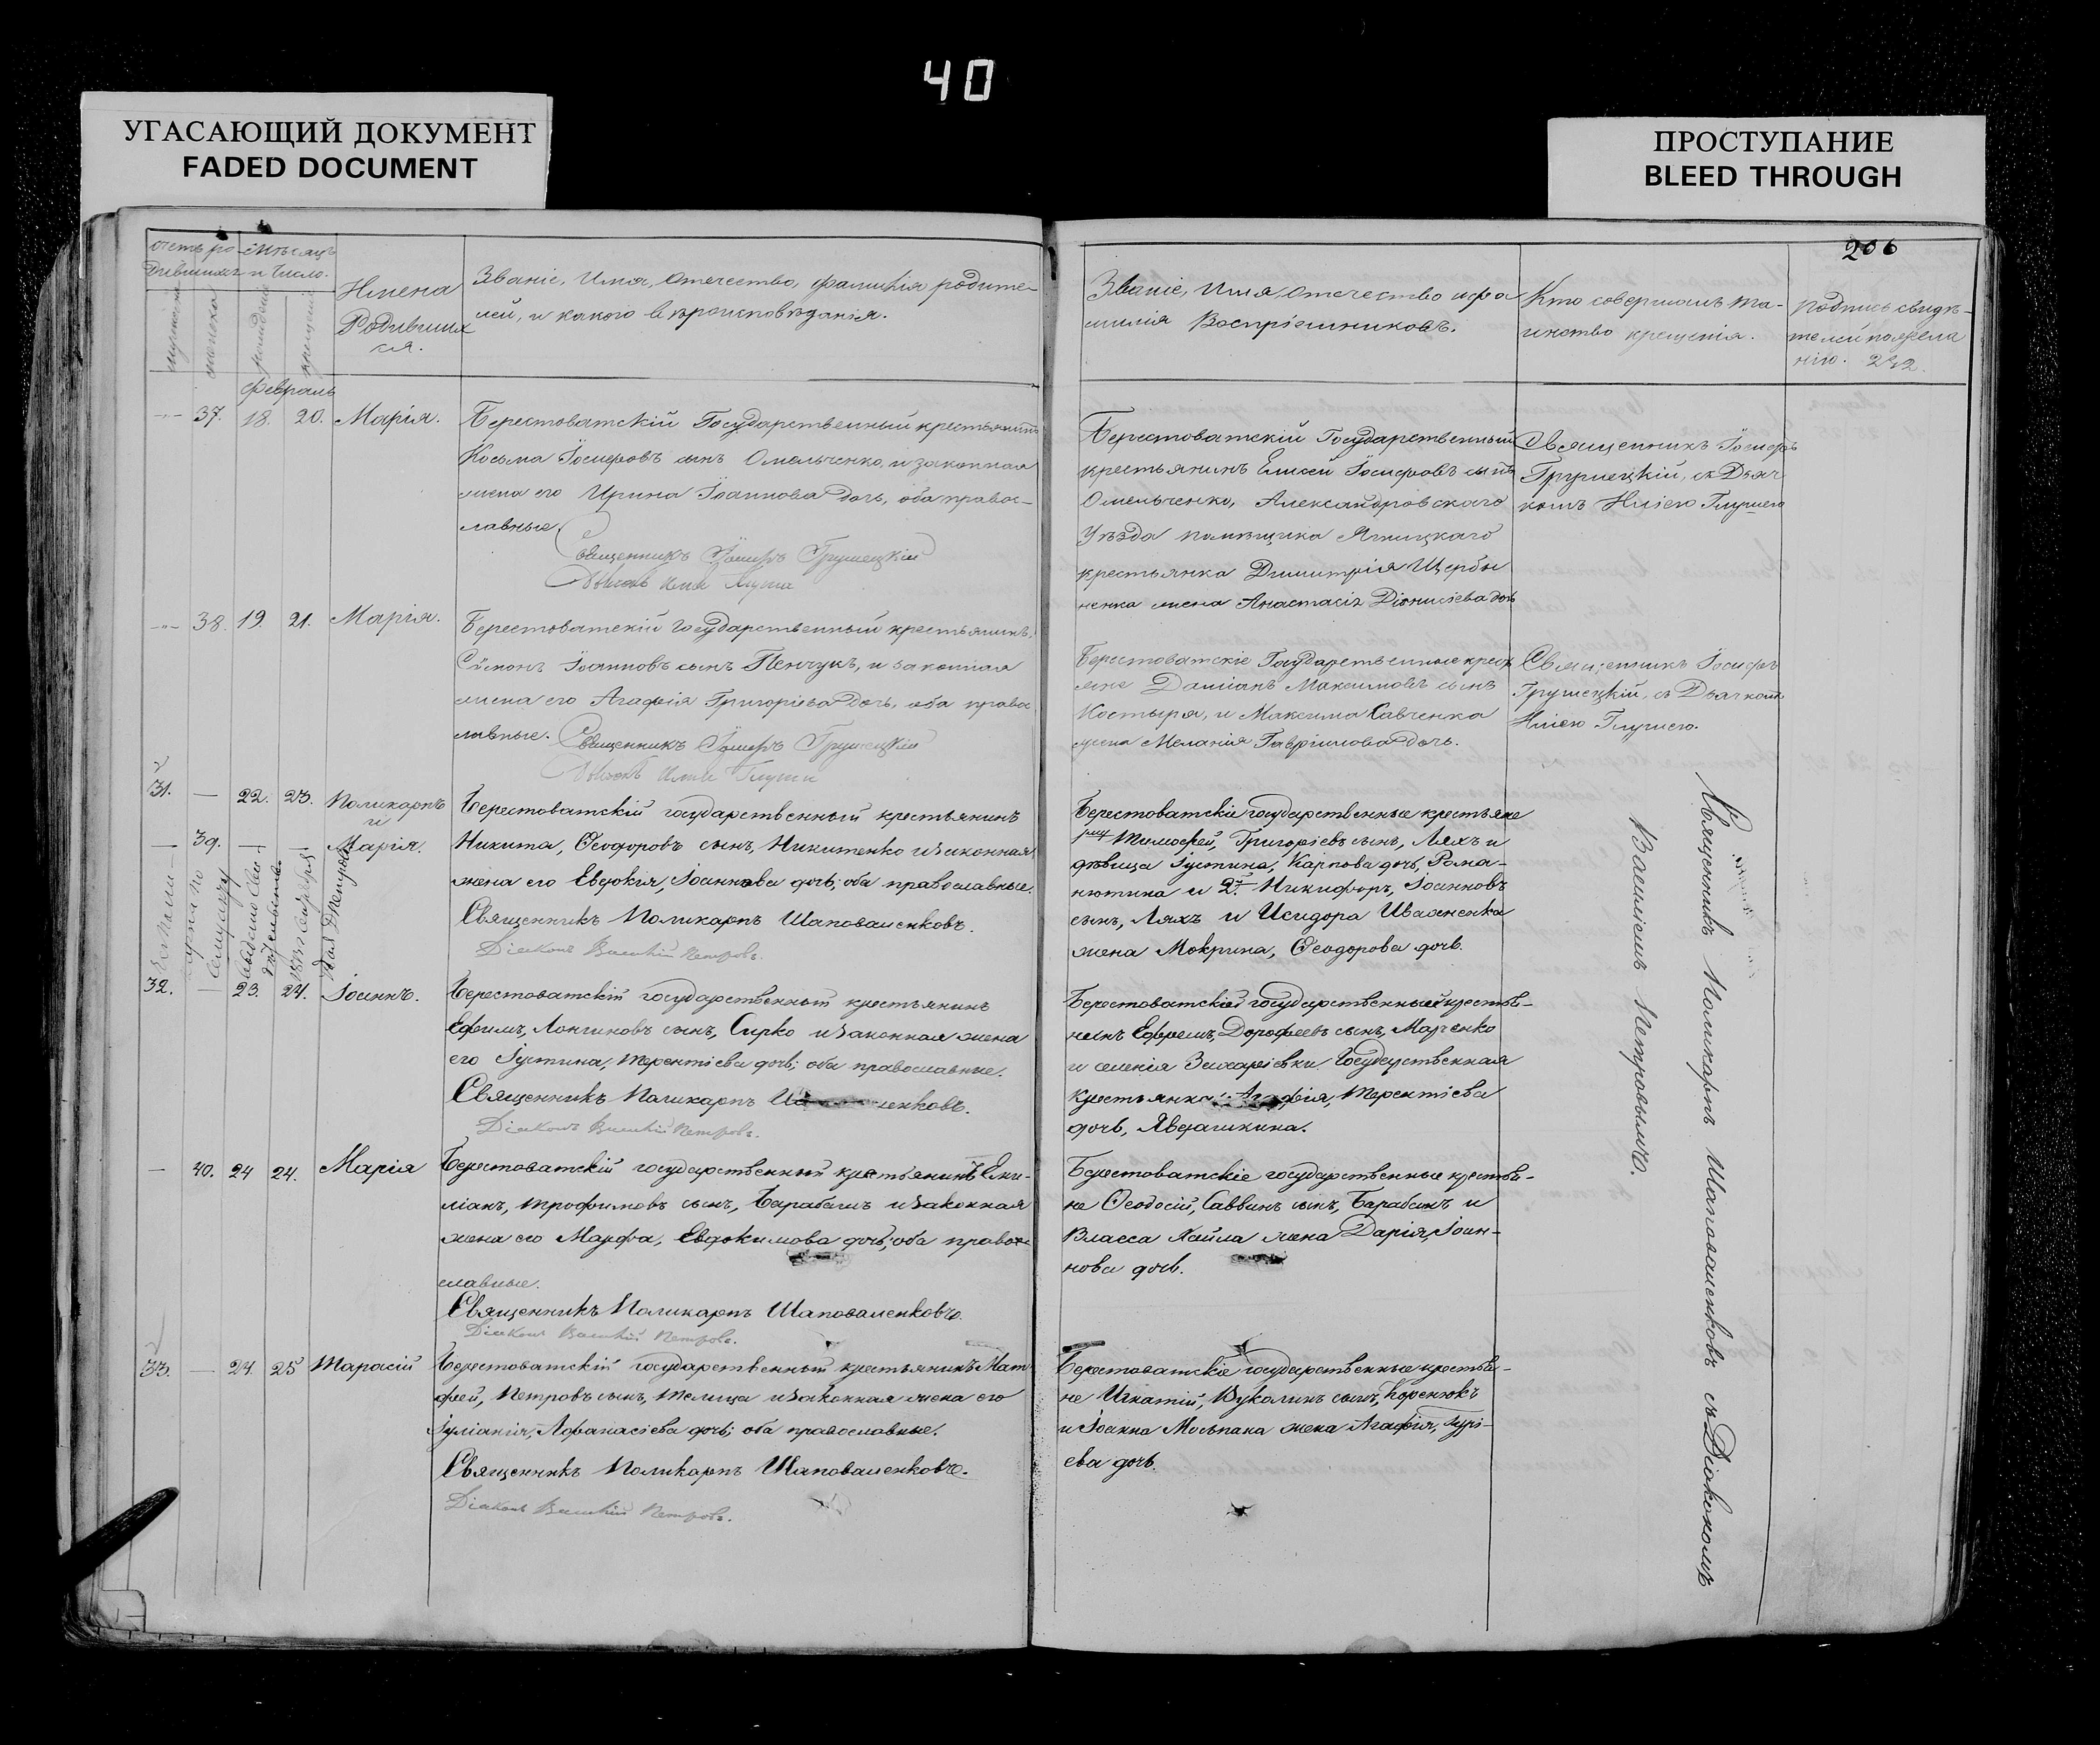 40
УГАСАЮЩИЙ ДОКУМЕНТ
FADED DOCUMENT
ПРОСТУПАНИЕ
BLEED THROUGH
206
Счетъ ро-
дившихся
Мѣсяцъ
и число.
мужеска
женска
рожденія
крещенія
Имена
Родивших
ся.
Званіе, Имя, Отечество, фамилія родите-
лей, и какого вѣроисповѣданія.
Званіе, Имя, Отечество и фа
милія Воспріемниковъ.
Кто совершалъ та-
инство крещенія.
Подпись свидѣ-
телей по жела
нію.
Февраль
37. 18. 20. Марія.
Берестоватскій Государственный крестьянинъ
Косьма Іосифовъ сынъ Омельченко, и законная
жена его Ирина Іоаннова дочь, оба правос-
лавные.
Священникъ Іосифъ Грушецкій
Дьячокъ Илія Глуши
Берестоватскій Государственный
крестьянинъ Елисей Іосифовъ сынъ
Омельченко, Александровскаго
Уѣзда помѣщика Ягницкаго
крестьянка Димитрія Щерби
ненка жена Анастасія Діонисіева дочь
Священникъ Іосифъ
Грушецкій, съ Дьяч
комъ Иліею Глушею
38. 19. 21. Марія.
Берестоватскій государственный крестьянинъ,
Симонъ Іоанновъ сынъ Пенчукъ, и законная
жена его Агафія Григоріева дочь, оба право
лавные.
Священникъ Іосифъ Грушецкій
Дьячокъ Илія Глуши
Берестоватскіе Государственные крест
яне Даміанъ Максимовъ сынъ
Костыря, и Максима Савченка
жена Меланія Гавріилова дочь.
Священникъ Іосифъ
Грушецкій, съ Дьячкомъ
Иліею Глушею.
31. — 22. 23. Поликарпъ
и
— 39. — — Марія.
Берестоватскій государственный крестьянинъ
Никита, Ѳеодоровъ сынъ, Никитенко и законная
жена его Евдокія, Іоаннова дочь; оба православные.
Священникъ Поликарпъ Шаповаленковъ.
Діаконъ Василій Петровъ.
Берестоватскіе государственные крестьяне
Тимоѳей, Григоріевъ сынъ, Ляхъ и
дѣвица Іустина, Карпова дочь, Рома-
нютина и 2й. Никифоръ, Іоанновъ
сынъ, Ляхъ и Исидора Ивахненка
жена Мокрина, Ѳеодорова дочь.
32. — 23. 24. Іоаннъ.
Берестоватскій государственный крестьянинъ
Ефимъ, Лонгиновъ сынъ, Сирко и законная жена
его Іустина, Терентіева дочь; оба православные.
Священникъ Поликарпъ
Діаконъ Василій Петровъ.
Берестоватскій государственный крестья-
нинъ Ефремъ, Дорофеевъ сынъ, Марченко
и селенія Захаріевки Государственная
крестьянка Агафія, Терентіева
дочь,
— 40. 24 24. Марія
Берестоватскій государственный крестьянинъ Еми-
ліанъ, Трофимовъ сынъ, Барабашъ и законная
жена его Марфа, Евдокимова дочь; оба право-
славные.
Священникъ Поликарпъ Шаповаленковъ.
Діаконъ Василій Петровъ.
Берестоватскіе государственные крестья-
не Ѳеодосій, Саввинъ сынъ, Барабашъ и
Власса жена Дарія, Іоан-
нова дочь.
33. — 24. 25 Тарасій
Берестоватскій государственный крестьянинъ Мат-
фей, Петровъ сынъ, Телица и законная жена его
Іуліанія, Афанасіева дочь; оба православные.
Священникъ Поликарпъ Шаповаленковъ.
Діаконъ Василій Петровъ.
Берестоватскіе государственные крестья-
не Игнатій, Вукалинъ сынъ, Коренюкъ
и Іоанна Мосьпана жена Агафія, Гурі-
ева дочь.
Священникъ Поликарпъ Шаповаленковъ съ Діакономъ
Василіемъ Петровымъ.